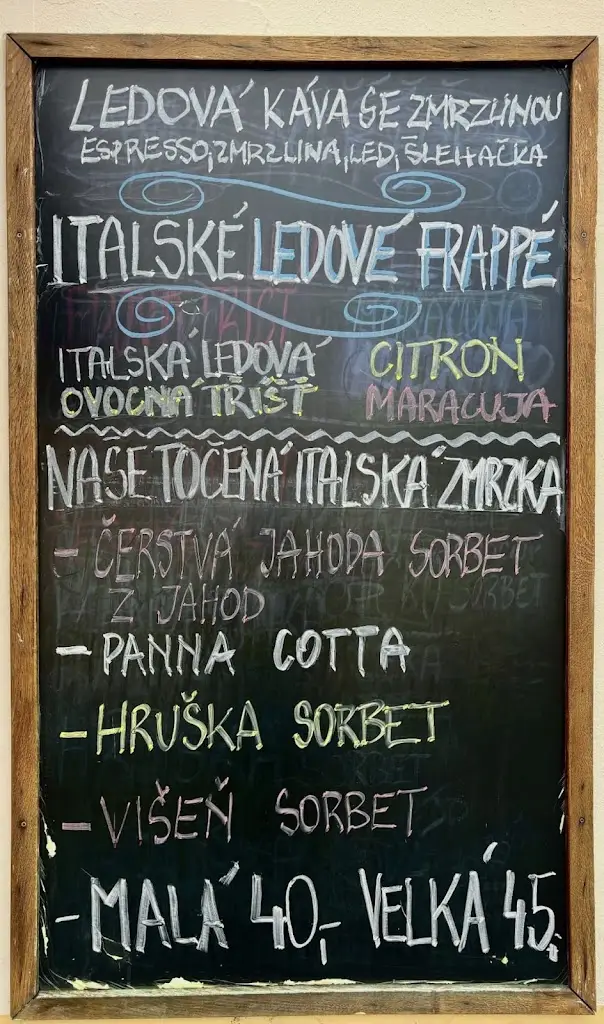 LEDOVÁ KÁVA SE ZMRZLINOU
ESPRESSO, ZMRZLINA, LED, ŠLEHAČKA
ITALSKÉ LEDOVÉ FRAPPÉ
ITALSKÁ LEDOVÁ CITRON
OVOCNÁ TŘÍŠŤ MARACUJA
NAŠE TOČENÁ ITALSKÁ ZMRZKA
- ČERSTVÁ JAHODA SORBET
Z JAHOD
- PANNA COTTA
- HRUŠKA SORBET
- VIŠEŇ SORBET
- MALÁ 40,- VELKÁ 45,-